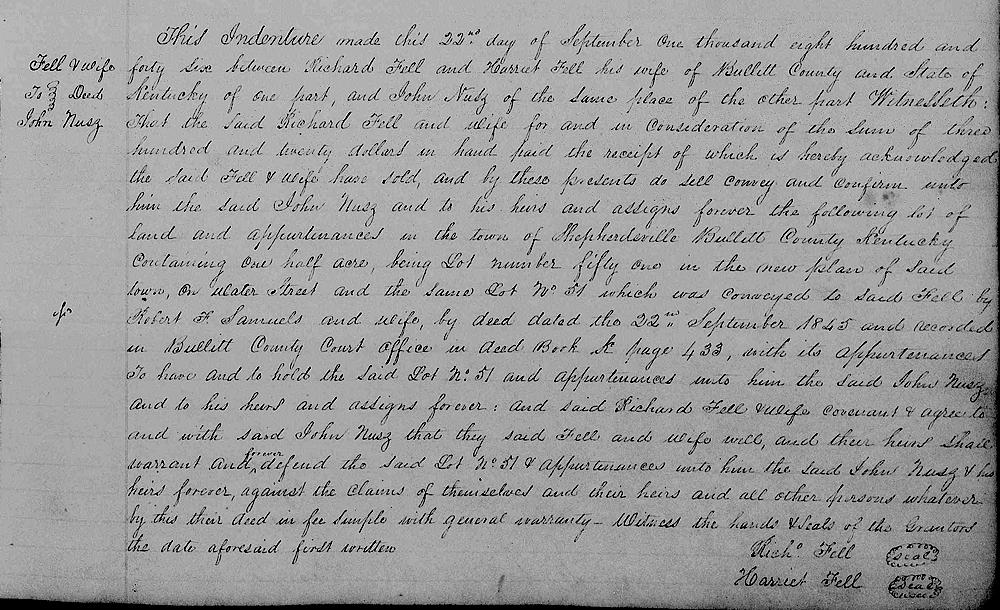 This Indenture made this 22nd day of September One thousand eight hundred and
Fell & wife
To Deed
John Nusz
forty six between Richard Fell and Harriet Fell his wife of Bullitt County and State of
Kentucky of one part, and John Nusz of the same place of the other part Witnesseth:
That the said Richard Fell and wife for and in Consideration of the Sum of three
hundred and twenty dollars in hand paid the receipt of which is hereby acknowledged
the said Fell & wife have sold, and by these presents do sell convey and confirm unto
him the said John Nusz and to his heirs and assigns forever the following lot of
land and appurtenances in the town of Shepherdsville Bullitt County Kentucky
Containing One half acre, being Lot number fifty one in the new plan of said
town, on Water Street and the same Lot No 51 which was conveyed to said Fell by
Robert F Samuels and wife, by deed dated the 22nd September 1845 and recorded
in Bullitt County Court office in deed Book K page 433, with its appurtenances
To have and to hold the said Lot No 51 and appurtenances unto him the said John Nusz
and to his heirs and assigns forever: and said Richard Fell & wife covenant & agree to
and with said John Nusz that they said Fell and wife will, and their heirs shall
warrant and forever defend the said Lot No 51 & appurtenances unto him the said John Nusz & his
heirs forever, against the claims of themselves and their heirs and all other persons whatever
by this their deed in fee simple with general warranty - Witness the hands & seals of the Grantors
the date aforesaid first written
Richd. Fell seal
Harriet Fell seal